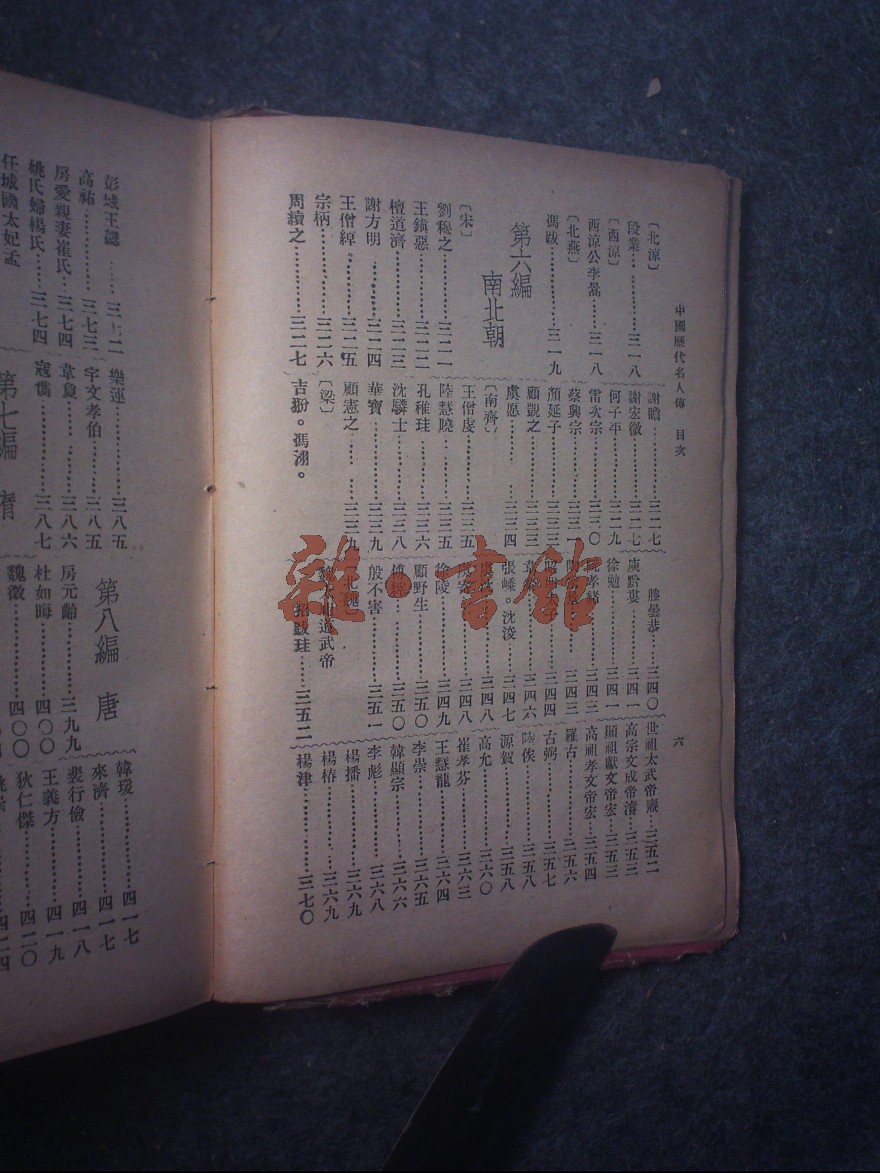 中國歷代名人傳　目次
六
〔北涼〕
段業…………三一八
〔西涼〕
西涼公李暠……三一八
〔北燕〕
馮跋…………三一九
第六編
南北朝
〔宋〕
劉穆之…………三二一
王鎮惡…………三二二
檀道濟…………三二三
謝方明…………三二四
王僧綽…………三二五
宗柄…………三二六
周續之…………三二七
謝瞻…………三二七
謝宏微…………三二七
何子平…………三二九
雷次宗…………三三〇
蔡興宗…………三三一
顏延子…………三三三
顧觀之…………三三三
虞愿…………三三四
〔南齊〕
王僧虔…………三三五
陸慧曉…………三三五
孔稚珪…………三三六
沈驎士…………三三八
華寶…………三三九
顧憲之…………三三九
〔梁〕
吉翂。馮翊。
滕曇恭…………三四〇
庾黔婁…………三四一
徐勉…………三四一
孝緒…………三四三
三四三
三四四
三四六
張嵊。沈浚……三四七
三四八
三四八
徐陵…………三四九
顧野生…………三五〇
三五〇
殷不害…………三五一
道武帝
拓跋珪……三五二
世祖太武帝燾…三五二
高宗文成帝濬…三五三
顯祖獻文帝宏…三五三
高祖孝文帝宏…三五四
羅古…………三五六
古弼…………三五七
陸俟…………三五八
源賀…………三五八
高允…………三六〇
崔孝芬…………三六三
王慧龍…………三六四
李崇…………三六五
韓顯宗…………三六六
李彪…………三六八
楊播…………三六九
楊椿…………三六九
楊津…………三七〇
彭城王勰……三七二
高祐…………三七三
房愛親妻崔氏……三七四
姚氏婦楊氏……三七四
任城國太妃孟
樂運…………三八五
宇文孝伯……三八五
韋敻…………三八六
寇儁…………三八七
第七編　隋
第八編　唐
房元齡…………三九九
杜如晦…………四〇〇
魏徵…………四〇〇
韓瑗…………四一七
來濟…………四一七
裴行儉…………四一八
王義方…………四一九
狄仁傑…………四二〇
雜·書館